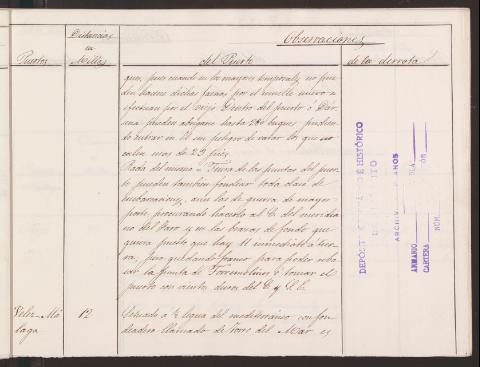 Observaciones
Puertos
Distancias
en
Millas
del Puerto
de la derrota
que, pues cuando en los mayores temporales no pue-
den hacerse dichas faenas por el muelle nuevo se
efectuan por el viejo. Dentro del puerto ó Dár-
sena pueden abrigarse hasta 280 buques, pudien-
do entrar en él sin peligro de varar los que no
calen mas de 23 piés.
Rada del mismo = Fuera de las puntas del puer-
to pueden tambien fondear toda clase de
embarcaciones, aun las de guerra de mayor
porte, procurando hacerlo al E. del meridia-
no del Faro y en las brazas de fondo que
quiera puesto que hay 11 inmediato á tier-
ra, pero quedando franco para poder reba-
sar la punta de Torremolinos ó tomar el
puerto con vientos duros del E. y S.E.
Velez-Má-
laga
12
Situado a ½ legua del mediterraneo con fon-
deadero llamado de Torre del Mar es
DEPÓSITO E HISTÓRICO
ITO
ARCHIV ANOS
ARMARIO DIA
CARTERA TOS
NÚM.